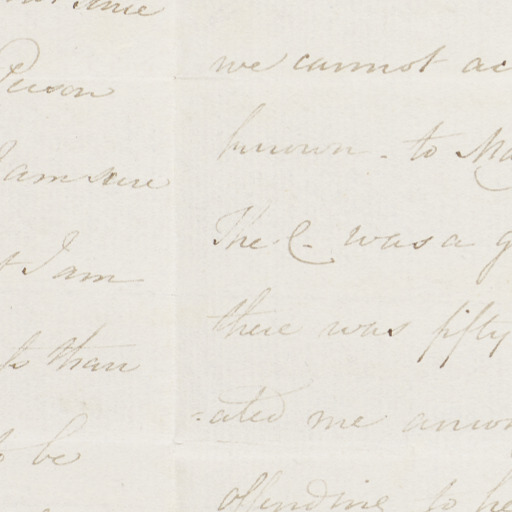 time
Person
I am sure
I am
than
be
we cannot ac
known - to Ma
The C- was a g
there was fifty
-ated me amon
offending to he